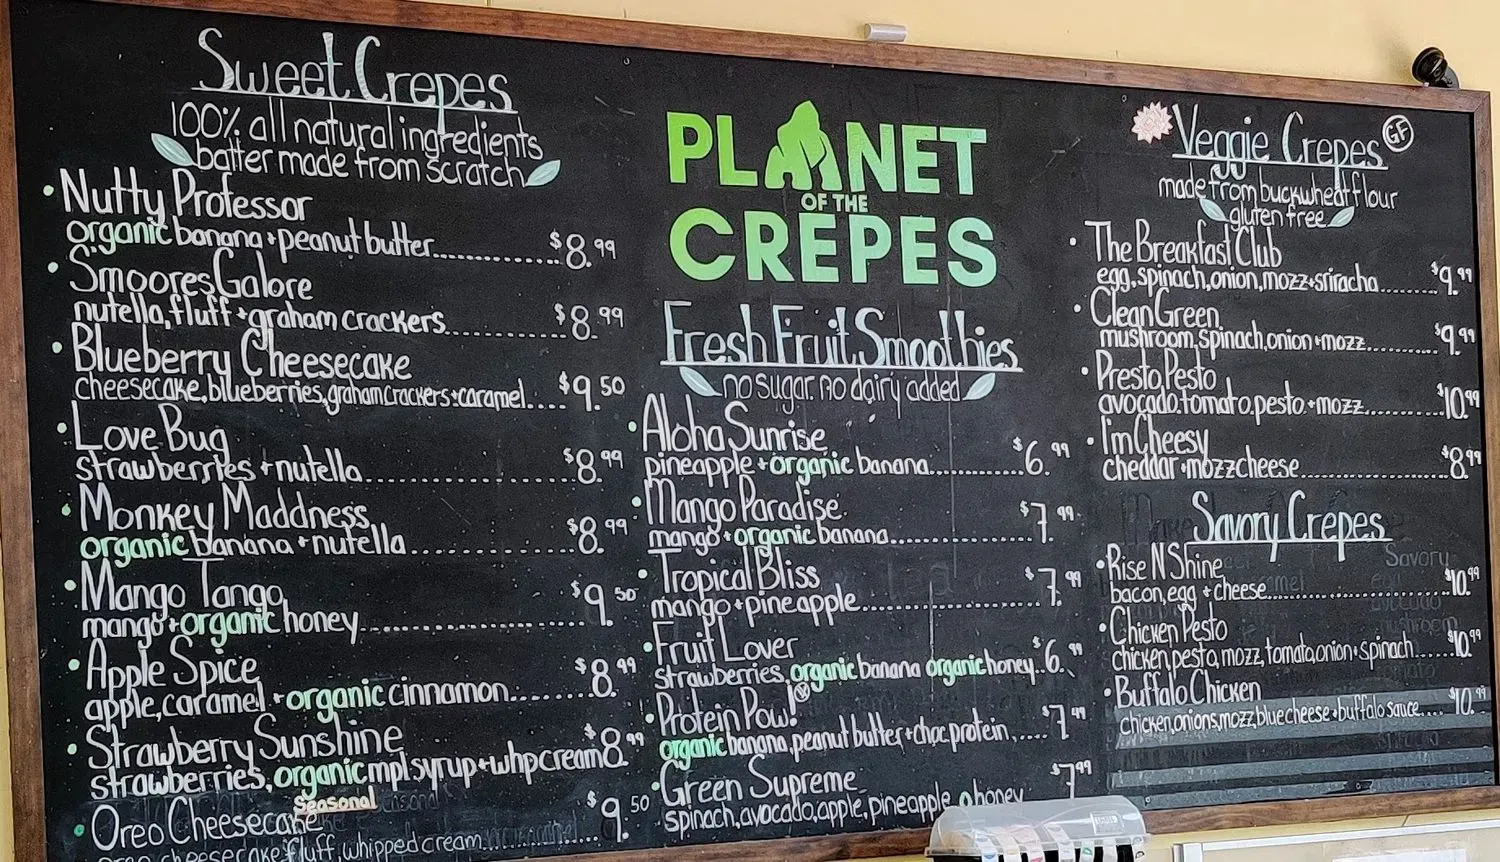 Sweet Crepes
100% all natural ingredients
batter made from scratch
• Nutty Professor
organic banana + peanut butter............... $8.99
• Smoores Galore
nutella, fluff + graham crackers............ $8.99
• Blueberry Cheesecake
cheesecake, blueberries, graham crackers + caramel.... $9.50
• Love Bug
strawberries + nutella.................... $8.99
• Monkey Maddness
organic banana + nutella................ $8.99
• Mango Tango
mango + organic honey.................... $9.50
• Apple Spice
apple, caramel + organic cinnamon....... $8.99
• Strawberry Sunshine
strawberries, organic mpl syrup + whp cream $8.99
Seasonal
• Oreo Cheesecake
oreo cheesecake, fluff, whipped cream........ $9.50
PLANET
OF THE
CRÊPES
Fresh Fruit Smoothies
no sugar. no dairy added
• Aloha Sunrise
pineapple + organic banana............ $6.99
• Mango Paradise
mango + organic banana................ $7.99
• Tropical Bliss
mango + pineapple...................... $7.99
• Fruit Lover
strawberries, organic banana organic honey.. $6.99
• Protein Pow!
organic banana, peanut butter + choc protein...... $7.99
• Green Supreme
spinach, avocado, apple, pineapple, o honey $7.99
Veggie Crepes GF
made from buckwheat flour
gluten free
• The Breakfast Club
egg, spinach, onion, mozz + sriracha.......... $9.99
• Clean Green
mushroom, spinach, onion + mozz............ $9.99
• Presto Pesto
avocado, tomato, pesto + mozz............ $10.99
• I'm Cheesy
cheddar + mozz cheese.................... $8.99
Savory Crepes
• Rise N Shine
bacon, egg + cheese......................... $10.99
• Chicken Pesto
chicken, pesto, mozz, tomato, onion + spinach...... $10.99
• Buffalo Chicken
chicken, onions, mozz, blue cheese + buffalo sauce.... $10.99